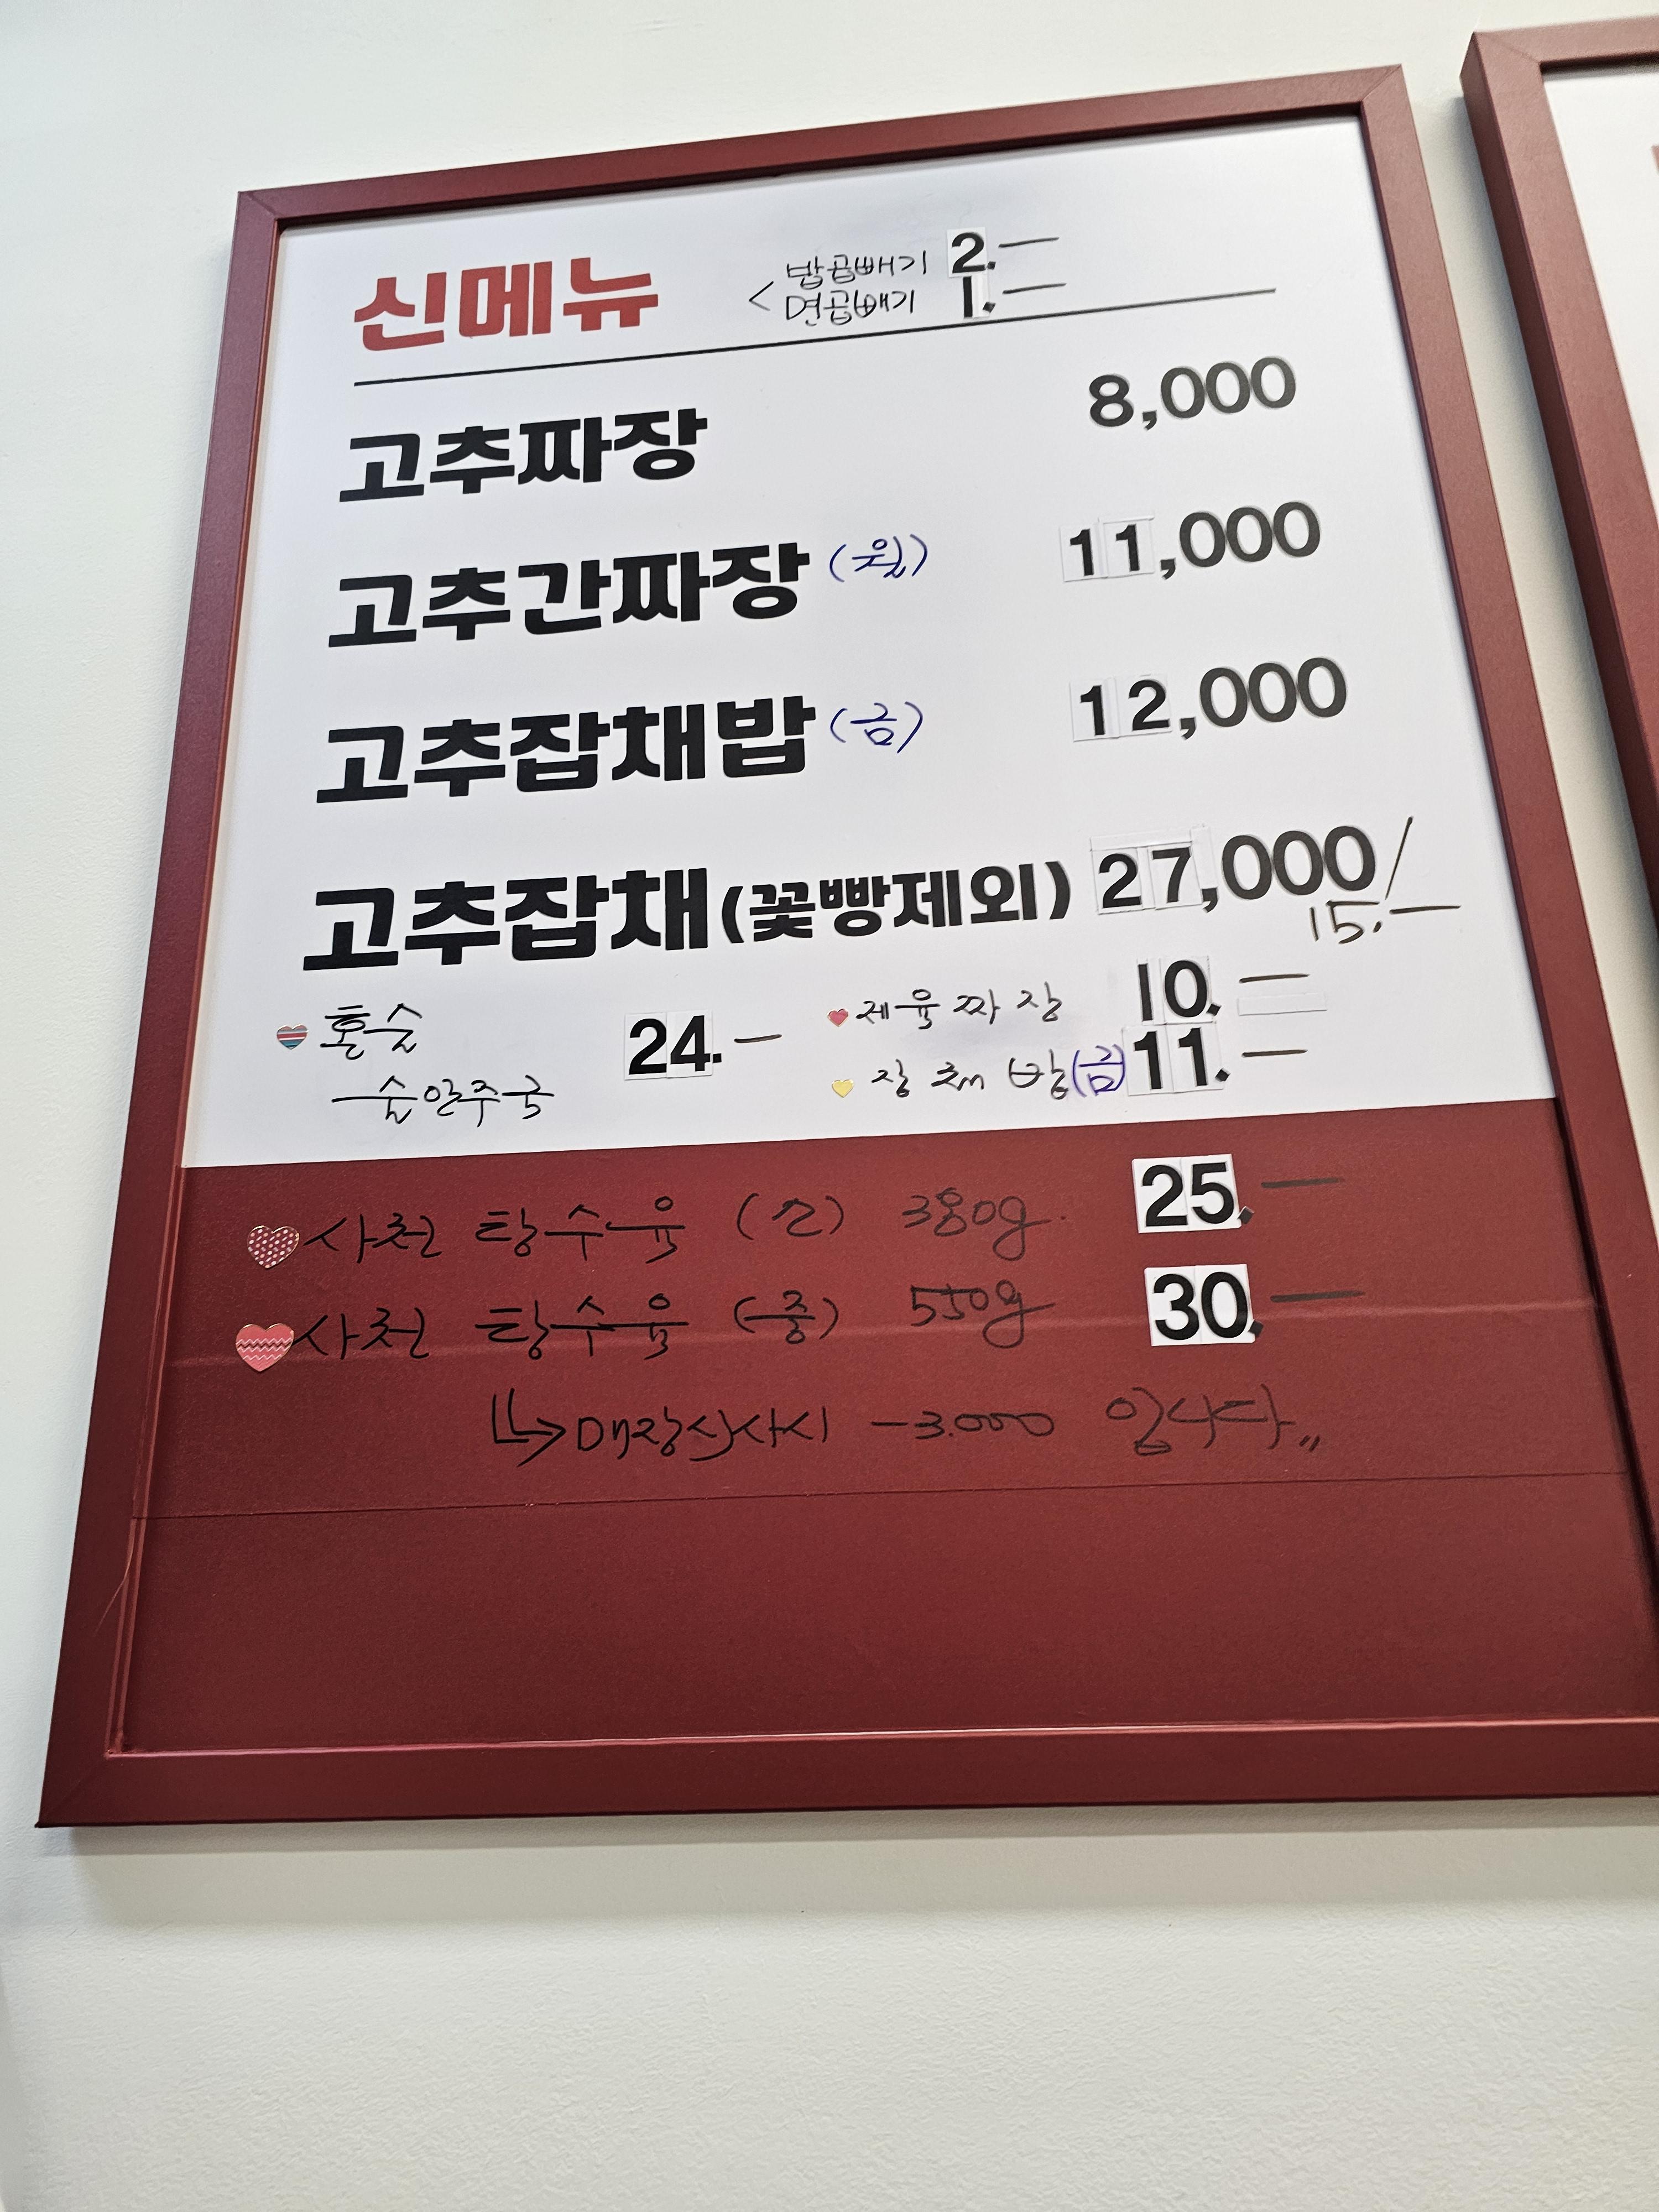 신메뉴 < 밥곱빼기 2.-
면곱빼기 1.-
고추짜장 8,000
고추간짜장 (월) 11,000
고추잡채밥 (금) 12,000
고추잡채(꽃빵제외) 27,000/
15.-
혼술 24.- 제육짜장 10.-
술안주국 잡채밥(금) 11.-
사천 탕수육 (소) 380g 25.-
사천 탕수육 (중) 550g 30.-
매장식사시 -3.000 입니다.,,